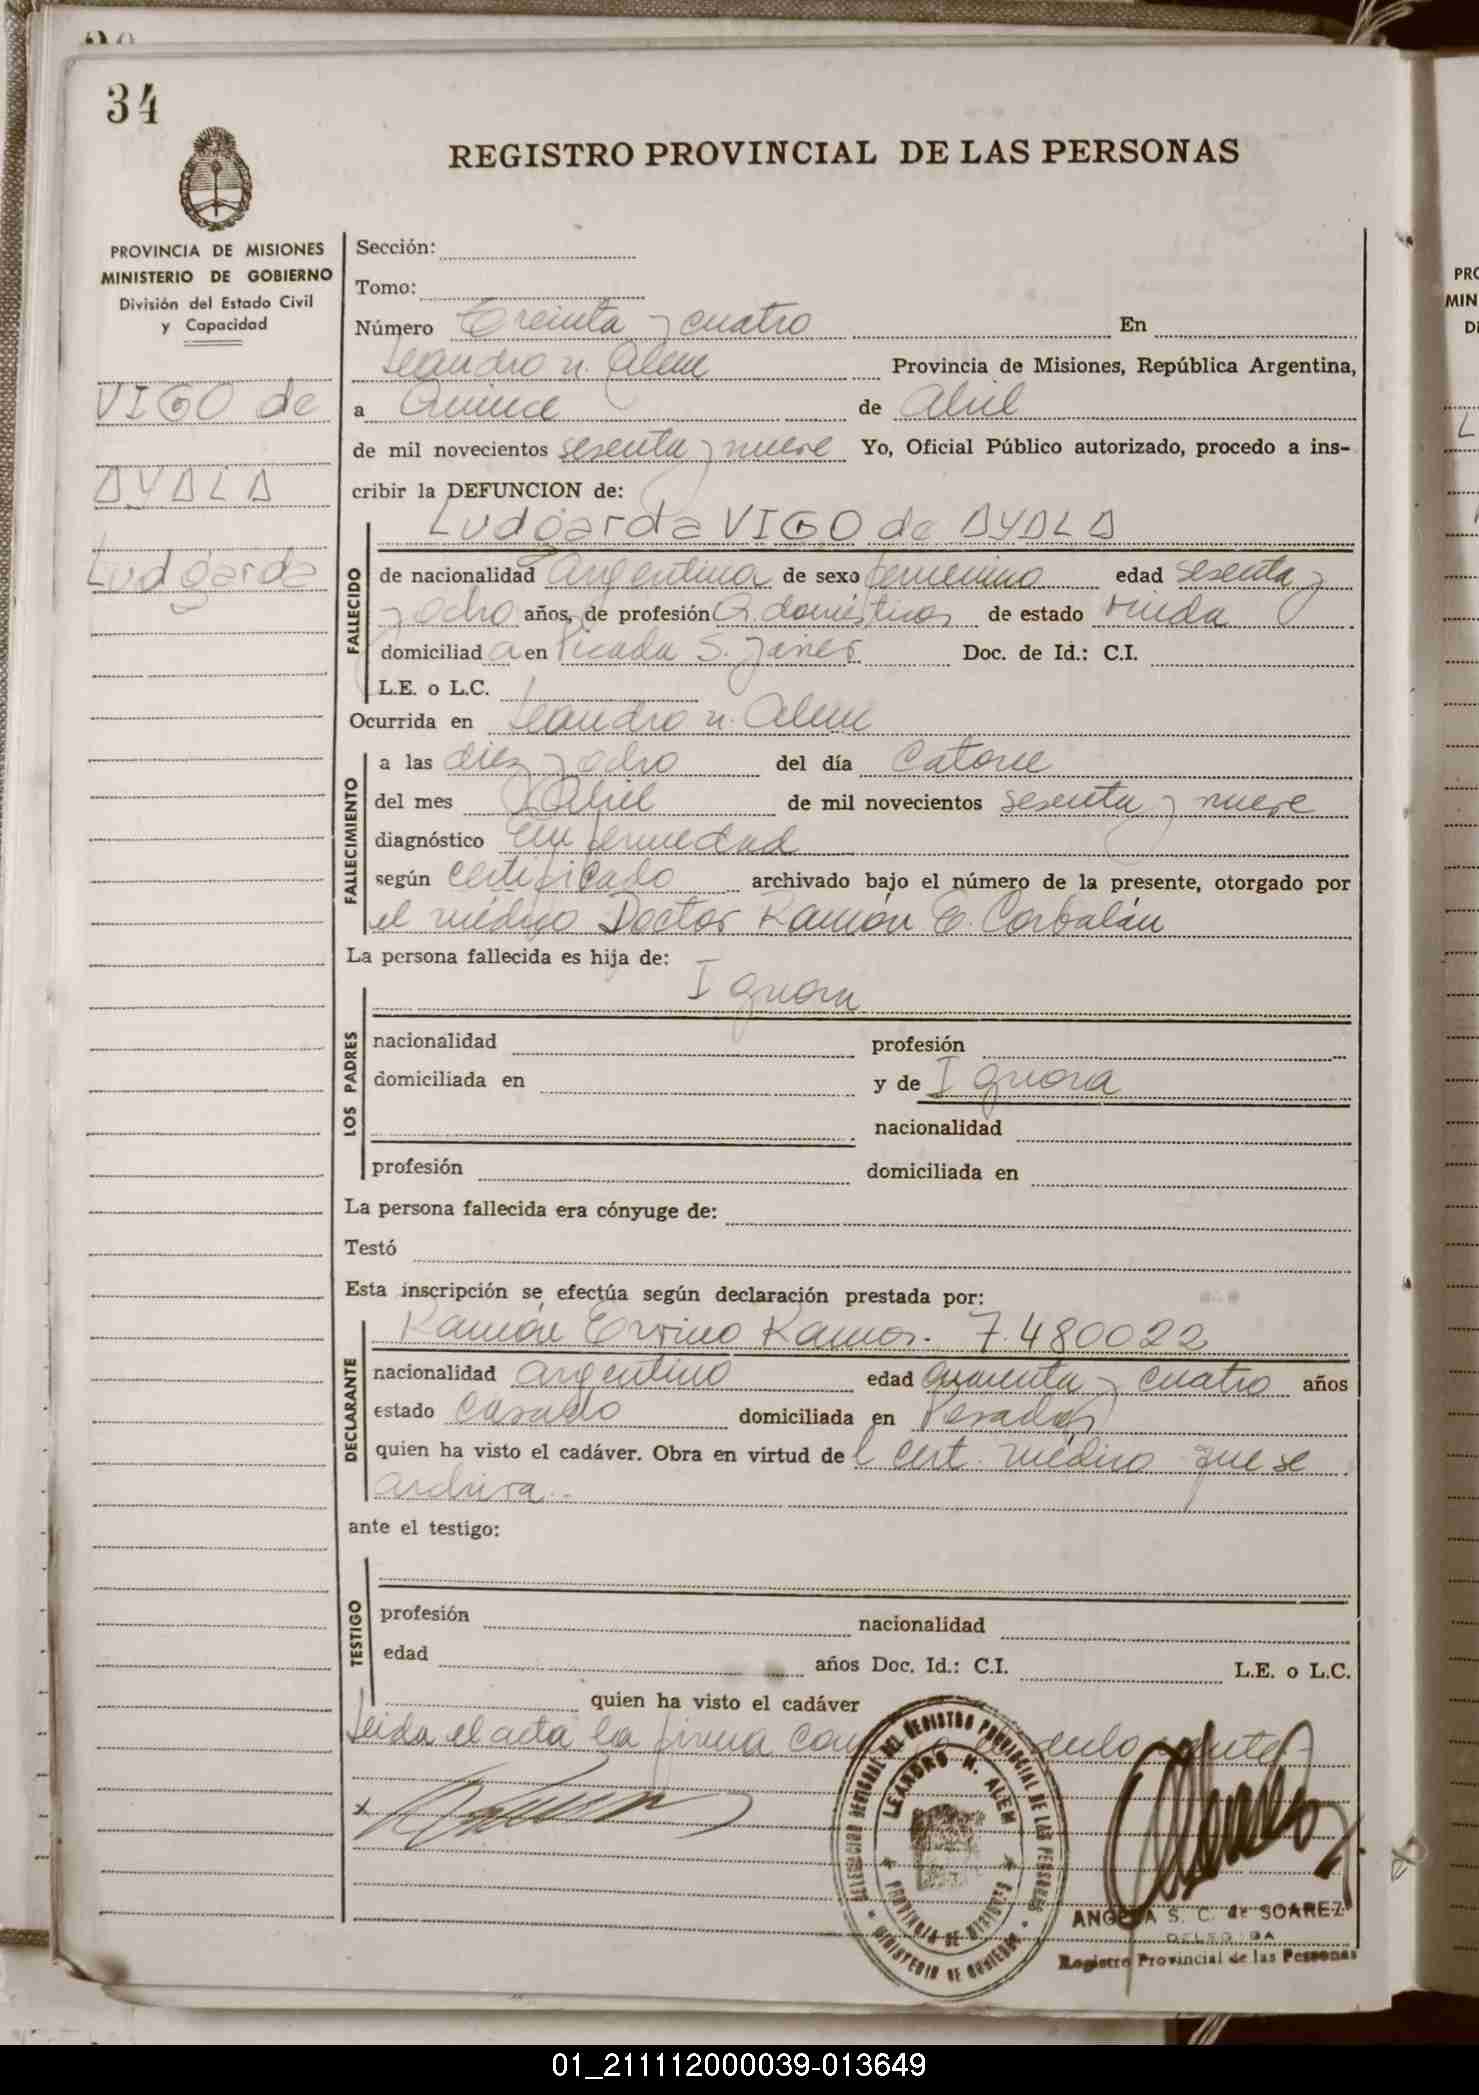 34
REGISTRO PROVINCIAL DE LAS PERSONAS
PROVINCIA DE MISIONES
MINISTERIO DE GOBIERNO
División del Estado Civil
y Capacidad
VIGO de
AYALA
Ludgarda
Sección:
Tomo:
Número Treinta y cuatro En
Leandro N. Alem Provincia de Misiones, República Argentina,
a Quince de Abril
de mil novecientos sesenta y nueve Yo, Oficial Público autorizado, procedo a ins-
cribir la DEFUNCION de:
Ludgarda VIGO de AYALA
FALLECIDO
de nacionalidad argentina de sexo femenino edad sesenta y
y ocho años, de profesión Q. domésticos de estado viuda
domiciliada en Picada S. Javier Doc. de Id.: C.I.
L.E. o L.C.
Ocurrida en Leandro N. Alem
FALLECIMIENTO
a las diez y ocho del día Catorce
del mes Abril de mil novecientos sesenta y nueve
diagnóstico Enfermedad
según certificado archivado bajo el número de la presente, otorgado por
el médico Doctor Ramón E. Corbalán
La persona fallecida es hija de:
LOS PADRES
Ignora
nacionalidad profesión
domiciliada en y de Ignora
nacionalidad
profesión domiciliada en
La persona fallecida era cónyuge de:
Testó
Esta inscripción se efectúa según declaración prestada por:
DECLARANTE
Ramón Ramos. 7.480022
nacionalidad argentino edad cuarenta y cuatro años
estado casado domiciliada en Posadas
quien ha visto el cadáver. Obra en virtud del cert. médico que se
archiva.
ante el testigo:
TESTIGO
profesión nacionalidad
edad años Doc. Id.: C.I. L.E. o L.C.
quien ha visto el cadáver
Leida el acta la firma
DEL REGISTRO PROVINCIAL DE LAS PERSONAS
LEANDRO N. ALEM
PROVINCIA DE MISIONES
MINISTERIO DE GOBIERNO
ANGELA S. C. de SOAREZ
DELEGADA
Registro Provincial de las Personas
PRO
MIN
01_211112000039-013649